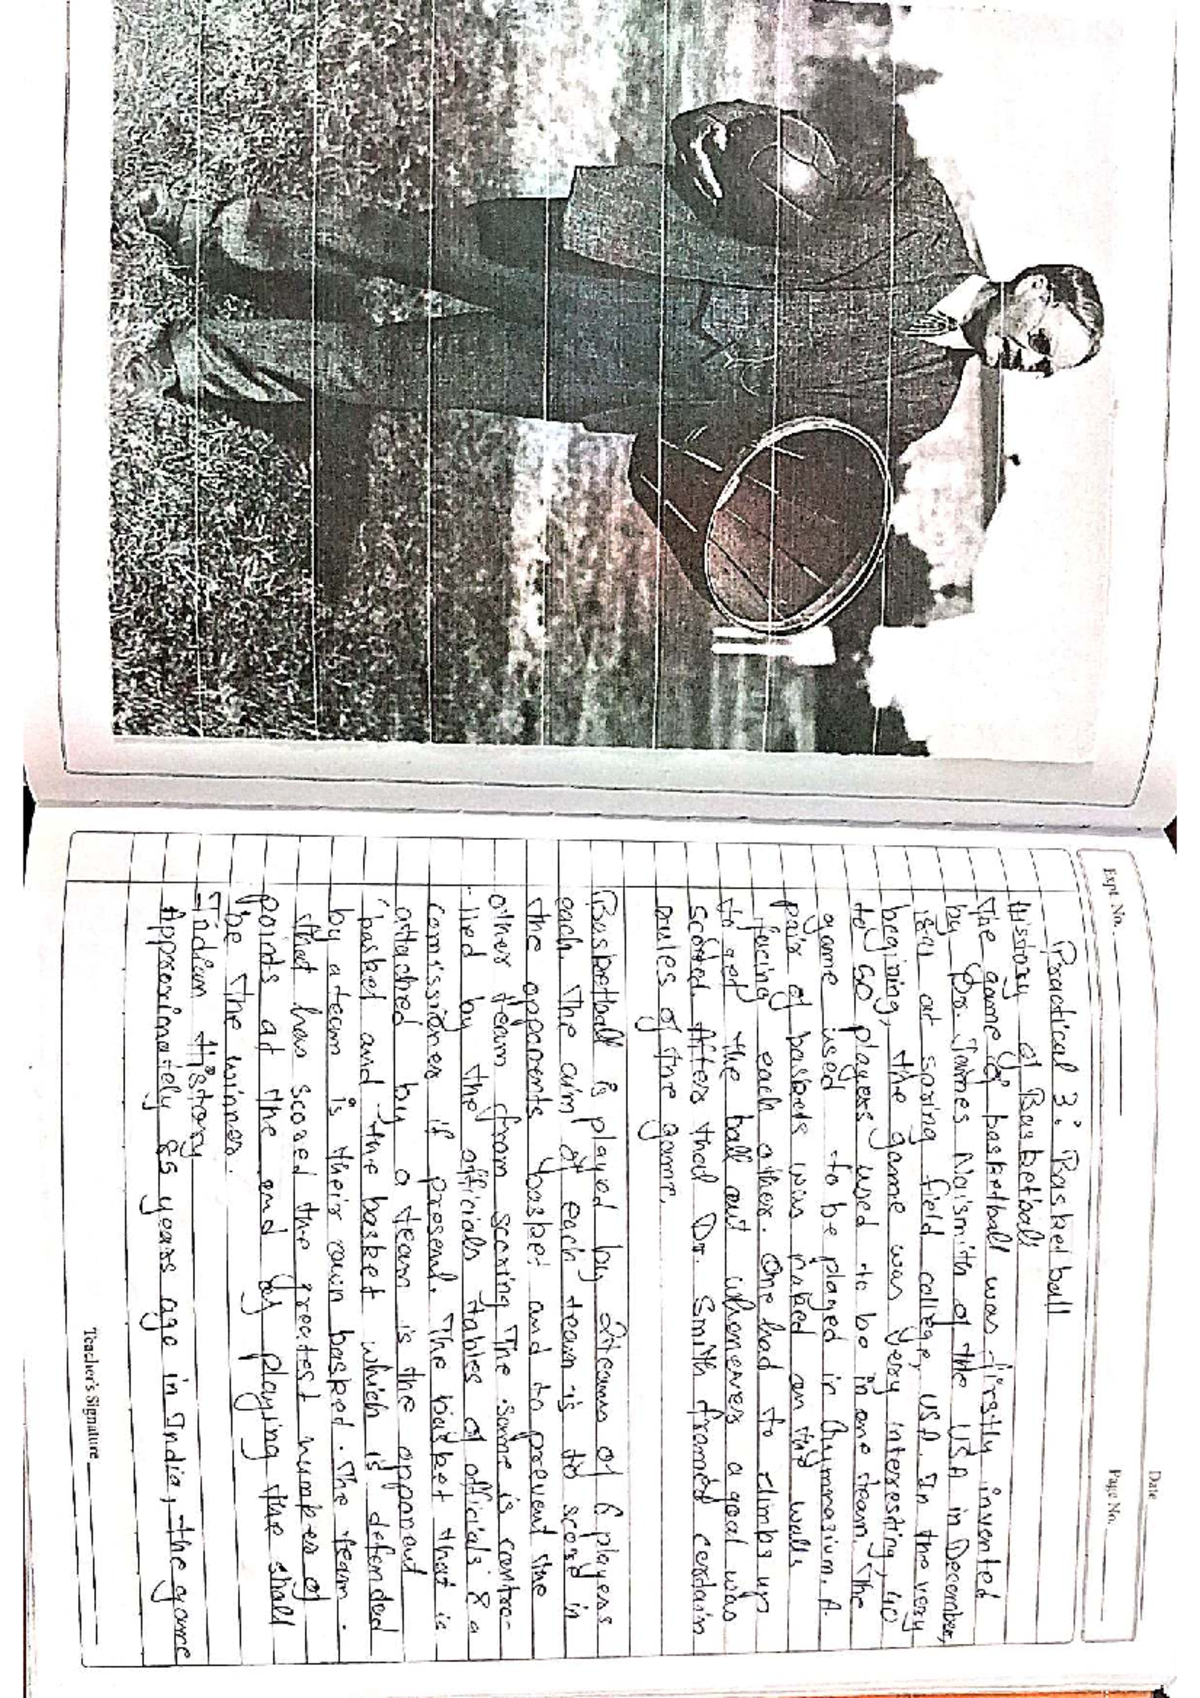 Date
Expt. No.
Page No.
Practical 3: Basketball
History of Basketball
The game of basketball was firstly invented
by Dr. James Naismith of the USA in December,
1891 at spring field college, USA. In the very
begining, the game was very interresting, 40
to 50 players used to be in one team. The
game used to be played in Gymnasium. A
pair of baskets was on the walls
facing each other. One had to climbs up
to get the ball out whenever a goal was
scored. After that Dr. Smith framed certain
rules of the game.
Basketball is played by 2 teams of 6 players
each. The aim of each team is to score in
the opponents basket and to prevent the
other team from scoring. The same is contro-
lled by the officials tables of officials & a
comissioner if present. The basket that is
attached by a team is the opponent
basket and the basket which is defended
by a team is their own basket. The team
that has scored the greatest number of
points at the end of playing the shall
be the winner.
Indian History
Approximately 85 years age in India, the game
Teacher's Signature